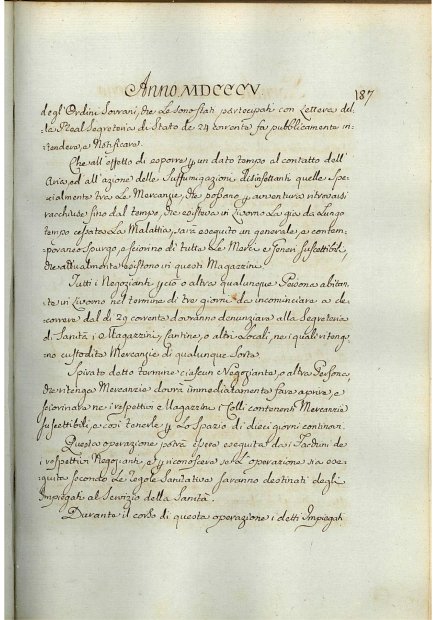 Anno MDCCCV.
187
degl'Ordini Sovrani, che le sono stati partecipati con Lettera del-
la Real Segreteria di Stato de 24 corrente fa pubblicamente in-
tendere, e Notificare
Che all'effetto di esporre p un dato tempo al contatto dell'
Aria, ed all'azione delle Suffumigazioni disinfettanti quelle spe-
cialmente tra le Mercanzie, che possano p avventura ritrovarsi
racchiuse fino dal tempo, che esisteva in Livorno la già da lungo
tempo cessata Malattia, sarà eseguito un generale, e contem-
poraneo spurgo, e sciorino di tutte le Merci e Generi suscettibili,
che attualmente esistono in questi Magazzini.
Tutti i Negozianti p ciò o altra qualunque Persona abitan-
te in Livorno nel termine di tre giorni da incominciare a de-
correre dal dì 29 corrente dovranno denunziare alla Segreteria
di Sanità i Magazzini, Cantine, o altri Locali, ne i quali riteng-
no custodite Mercanzie di qualunque Sorta.
Spirato detto termine ciascun Negoziante, o altra Persona,
che ritenga Mercanzie dovrà immediatamente fare aprire, e
sciorinare ne i respettivi Magazzini i Colli contenenti Mercanzie
suscettibili, e così tenerle p lo spazio di dieci giorni continui.
Questa operazione potrà essere eseguita da i Facchini de
i respettivi Negozianti, e p riconoscere se l'operazione sia ese-
guita secondo le regole Sanitarie saranno destinati degli
Impiegati al Servizio della Sanità.
Durante il corso di questa operazione i detti Impiegati